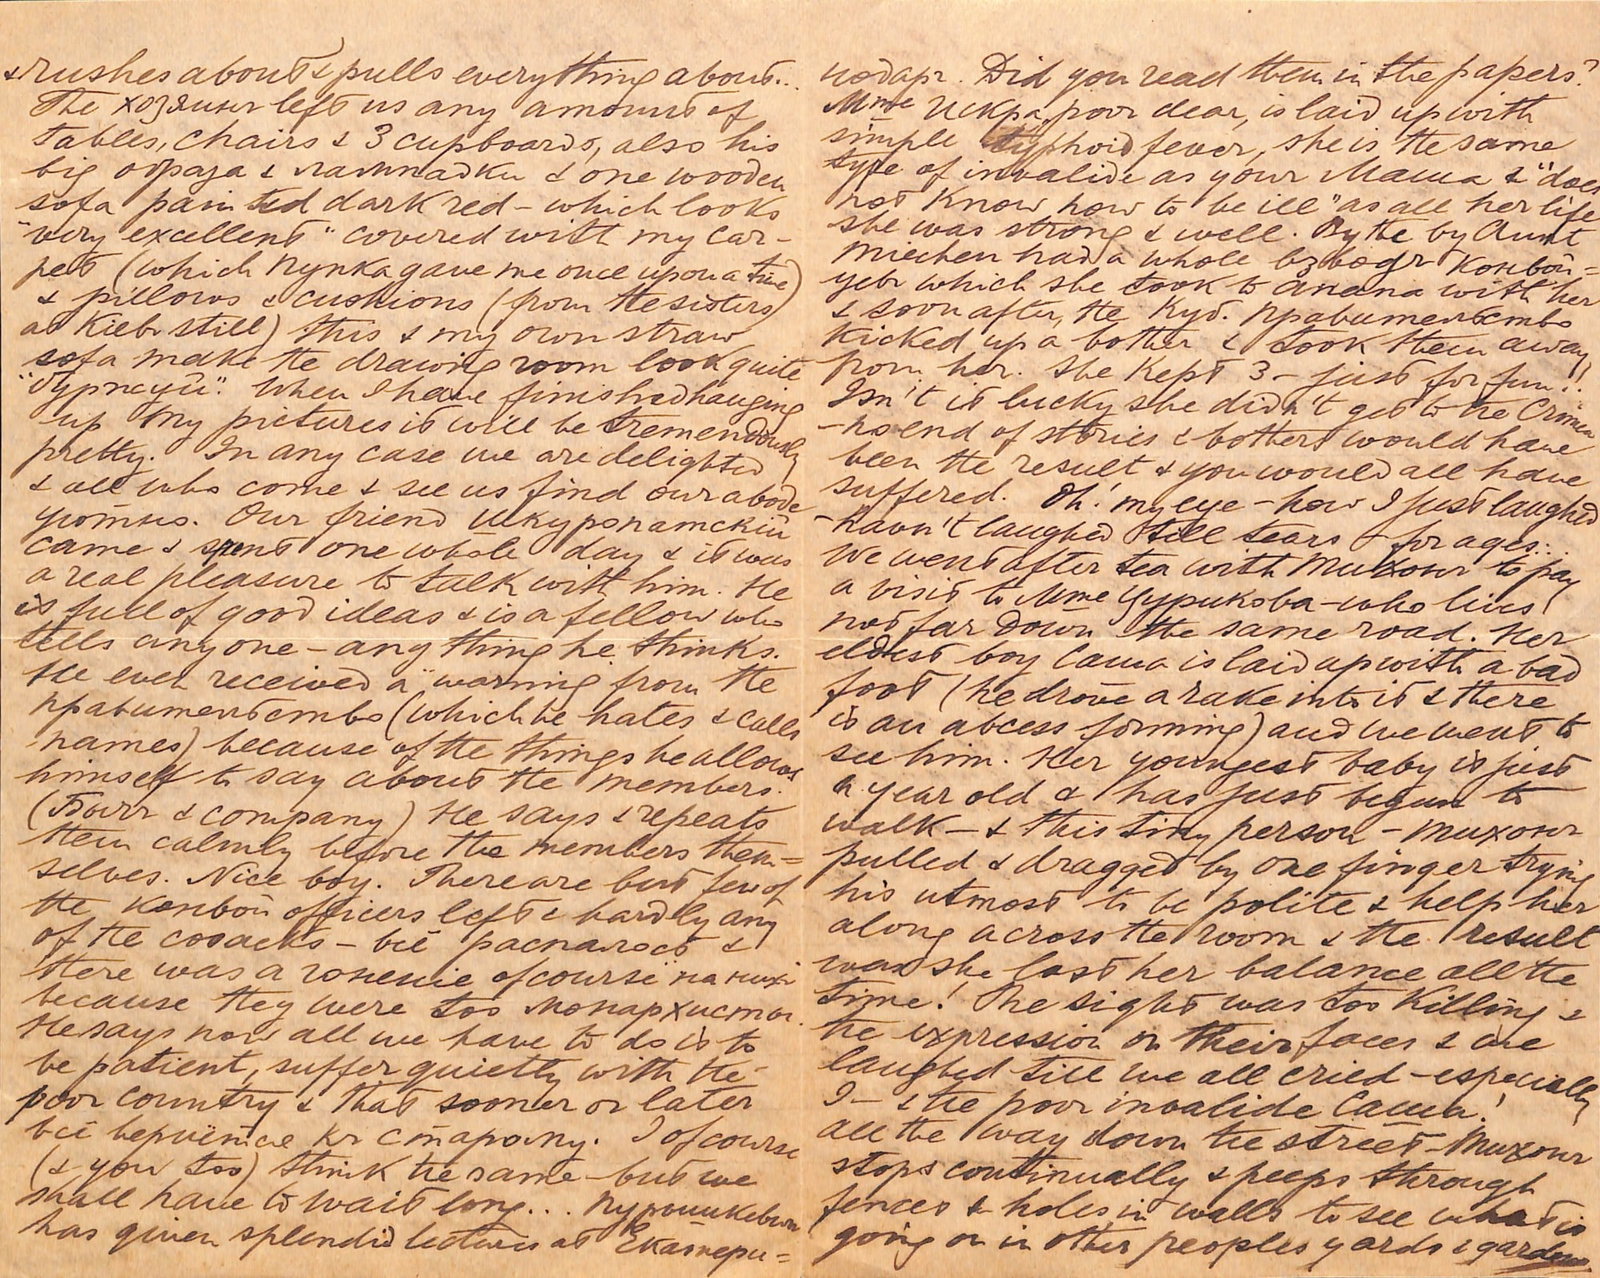 & rushes about & pulls everything about..
The хозяинъ left us any amount of
tables, chairs & 3 cupboards, also his
big образа & лампадки & one wooden
sofa painted dark red – which looks
"very excellent" covered with my car-
pet (which Пупка gave me once upon a time)
& pillows & cushions (from the sisters
at Kieb still) this & my own straw
sofa make the drawing room look quite
When I have finished hanging
up my pictures it will be tremendously
pretty. In any case we are delighted
& all who come & see us find our abode
уютно. Our friend
came & spent one whole day & it was
a real pleasure to talk with him. He
is full of good ideas & is a fellow who
tells anyone – anything he thinks.
He even received a "warning from the
правительство (which he hates & calls
names) because of the things he allows
himself to say about the members.
& company) He says & repeats
them calmly before the members them=
selves. Nice boy. There are but few of
the конвой officers left & hardly any
of the cosacks – всё &
there was a гоненіе of course "на нихъ
because they were too монархисты.
He says now all we have to do is to
be patient, suffer quietly with the
poor country & that sooner or later
всё вернётся къ старому. I of course
(& you too) think the same – but we
shall have to wait long... Пуришкевичъ
has given splendid lectures at Екатери=
нодаръ. Did you read them in the papers?
Mme Искра, poor dear, is laid up with
simple typhoid fever, she is the same
type of invalide as your Mama & "does
not know how to be ill" as all her life
she was strong & well. By the by Aunt
Miechen had a whole взводъ конвой=
цевъ which she took to Анапа with her
& soon after, the Куб. правительство
kicked up a bother & took them away
from her. She kept 3 – just for fun!!
Isn't it lucky she didn't get to the Crimea
– no end of stories & bothers would have
been the result & you would all have
suffered. Oh! my eye – how I just laughed
– havn't laughed till tears – for ages...
We went after tea with Тихонъ to pay
a visit to Mme Чурикова – who lives
not far down the same road. Her
eldest boy Саша is laid up with a bad
foot (he drove a rake into it & there
is an abcess forming) and we went to
see him. Her youngest baby is just
a year old & has just begun to
walk – & this tiny person – Тихонъ
pulled & dragged by one finger trying
his utmost to be polite & help her
along across the room & the result
was she lost her balance all the
time! The sight was too killing &
the expression on their faces & we
laughed till we all cried – especially
I – & the poor invalide Саша!
All the way down the street – Тихонъ
stops continually & peeps through
fences & holes in walls to see what is
going on in other peoples yards & gardens